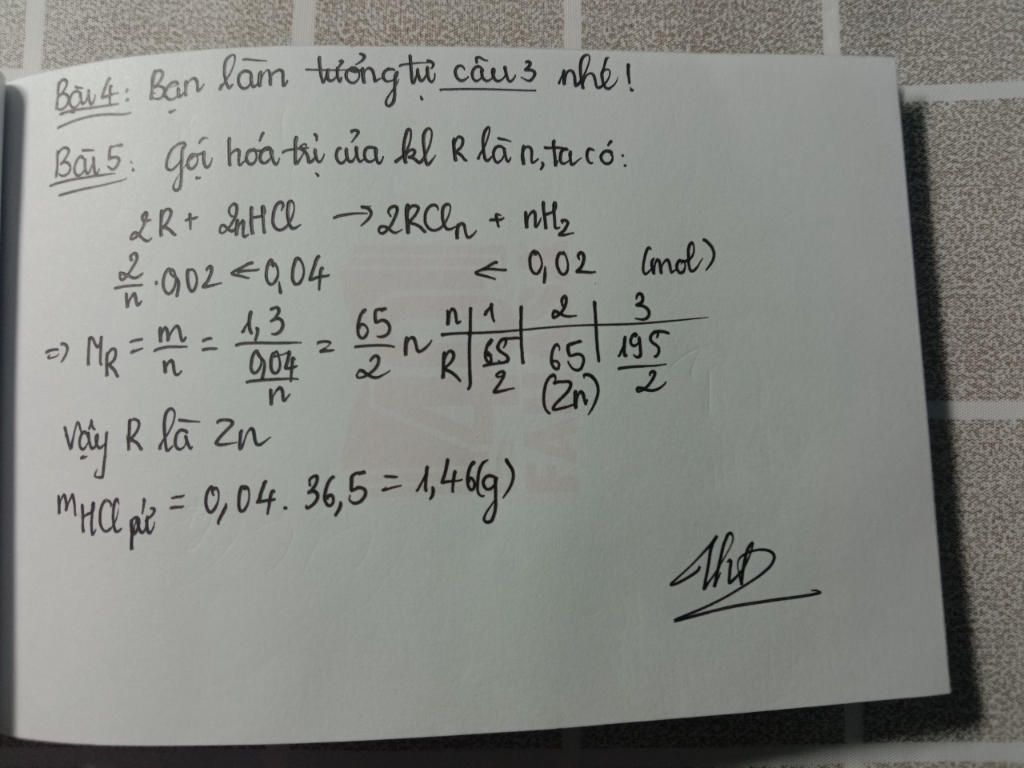 Bài 4: Bạn làm tương tự câu 3 nhé!
Bài 5: Gọi hóa trị của kl R là n, ta có:
2R + 2nHCl → 2RClₙ + nH₂
2/n · 0,02 ← 0,04 ← 0,02 (mol)
=> M_R = m/n = 1,3/(0,04/n) = 65/2 n
n | 1 | 2 | 3
R | 65/2 | 65 (Zn) | 195/2
Vậy R là Zn
m HCl pứ = 0,04 . 36,5 = 1,46(g)